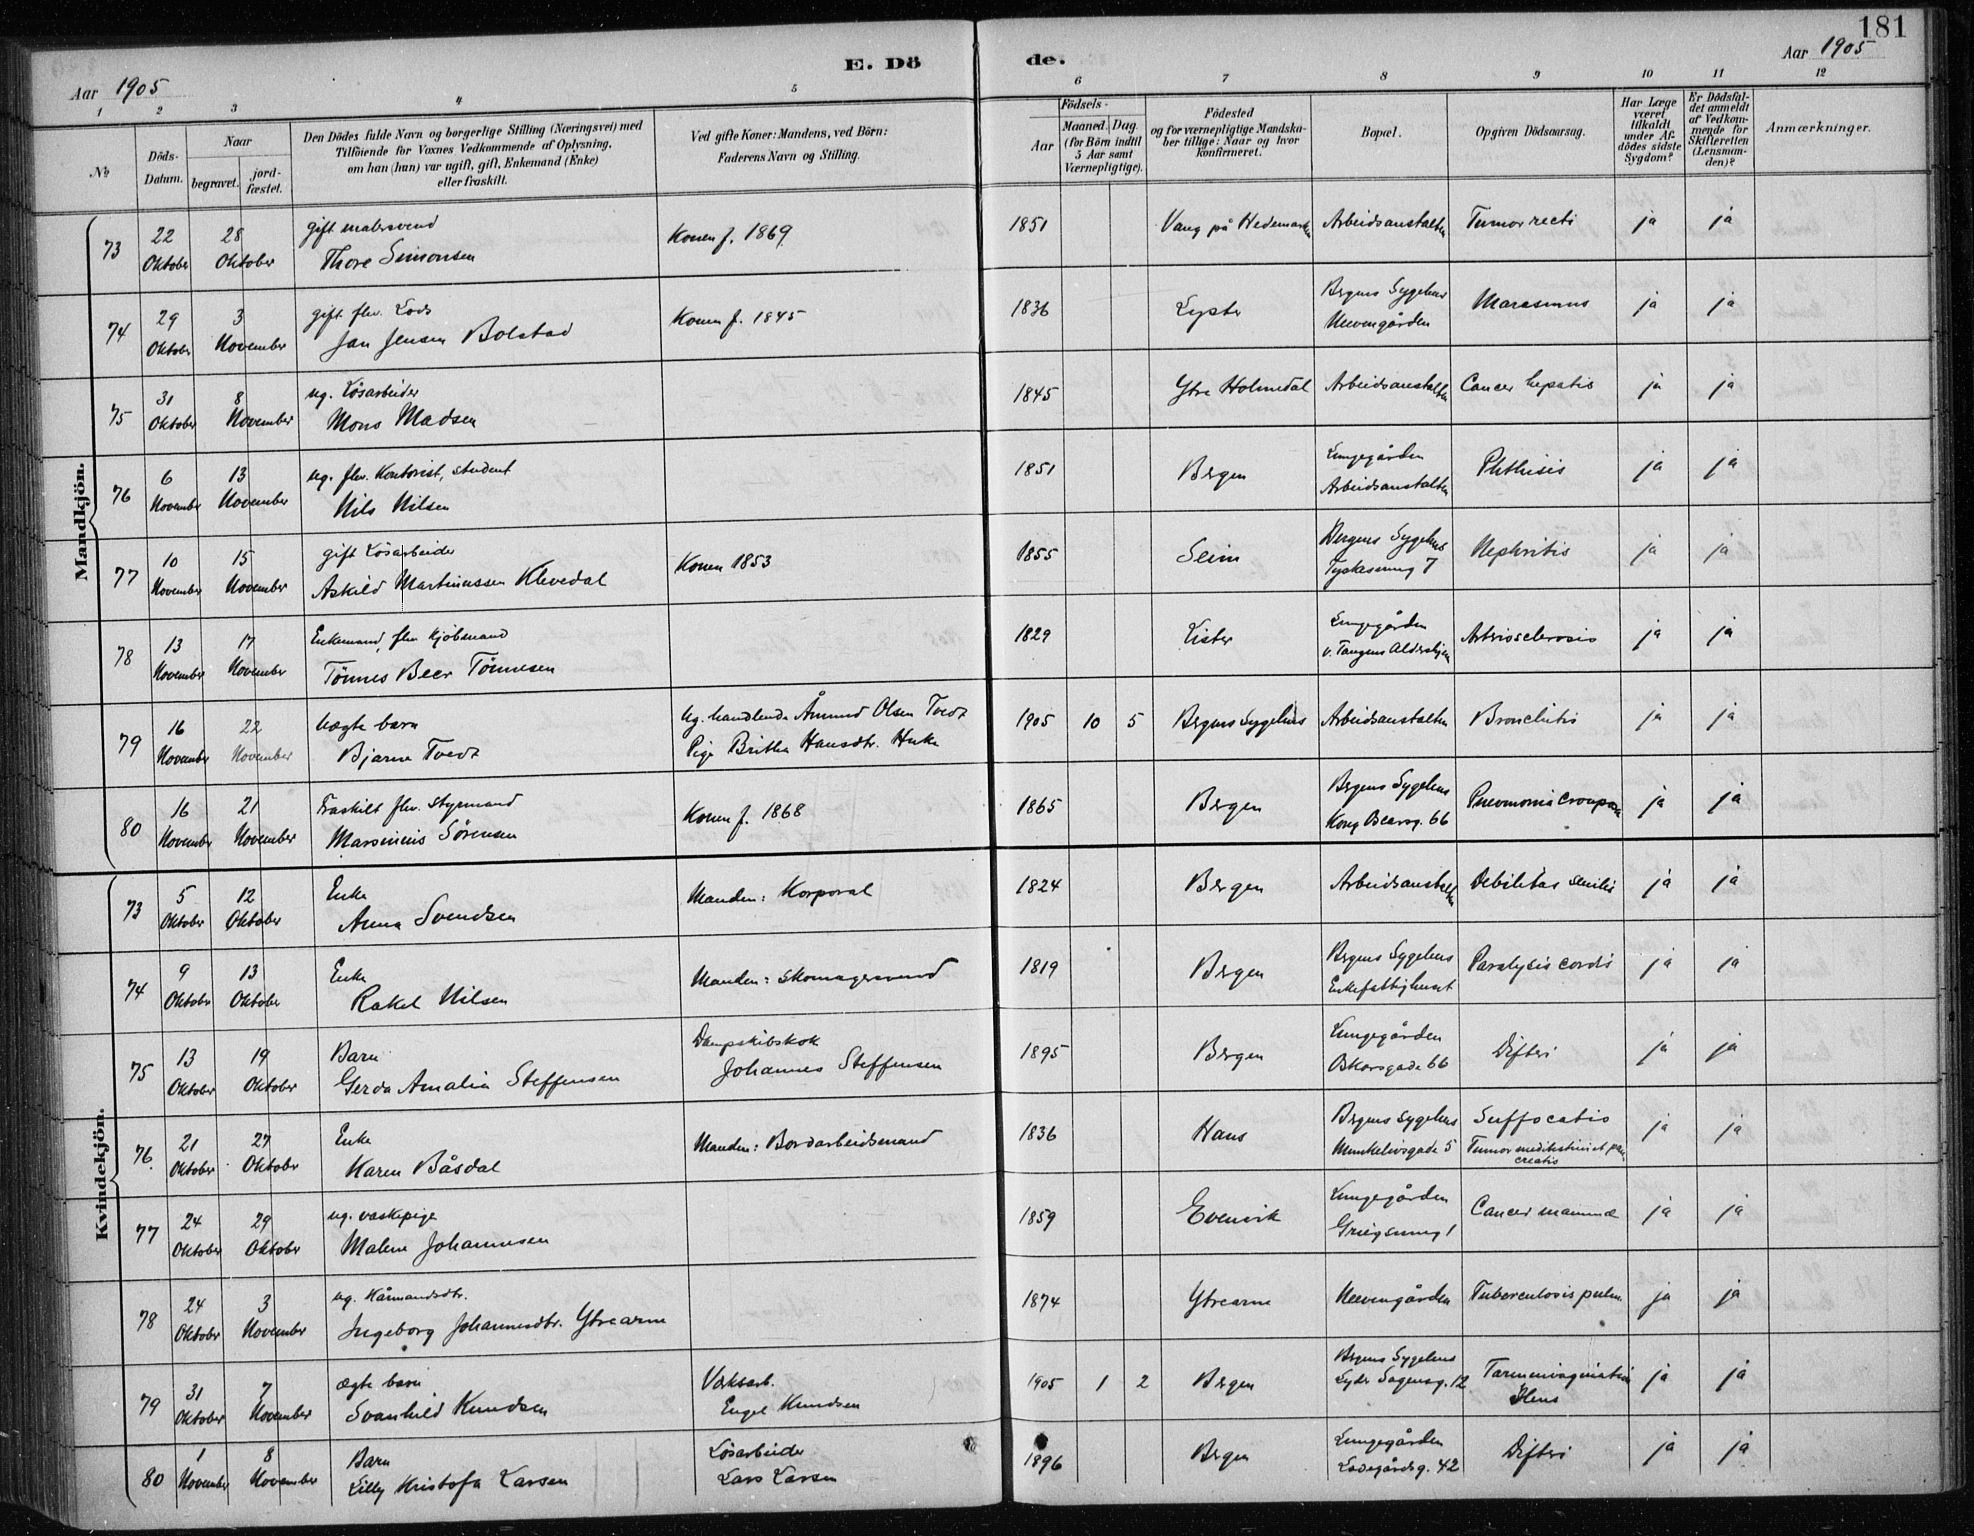 181
E. Döde.
Aar 1905
Aar 1905
1 2 3 4 5 6 7 8 9 10 11 12
No
Döds-Datum.
Naar
begravet.
jord-fæstet.
Den Dödes fulde Navn og borgerlige Stilling (Næringsvei) med
Tilföiende for Voxnes Vedkommende af Oplysning,
om han (hun) var ugift, gift, Enkemand (Enke)
eller fraskilt.
Ved gifte Koner: Mandens, ved Börn:
Faderens Navn og Stilling.
Födsels-
Aar
Maaned. Dag.
(for Börn indtil
5 Aar samt
Værnepligtige).
Födested
og for værnepligtige Mandska-
ber tillige: Naar og hvor
konfirmeret.
Bopæl.
Opgiven Dödsaarsag.
Har Læge
været
tilkaldt
under Af-
dödes sidste
Sygdom?
Er Dödsfal-
det anmeldt
af Vedkom-
mende for
Skifteretten
(Lensman-
den)?
Anmærkninger.
Mandkjön.
73 22 Oktober 28 Oktober gift malersvend Thore Simonsen Konen f. 1869 1851 Vang på Hedemarken Arbeidsanstalten Tumor recti ja ja
74 29 Oktober 3 November gift flv. Lods Jan Jensen Bolstad Konen f. 1845 1836 Lyster Bergens Sygehus Neevengården Marasmus ja ja
75 31 Oktober 8 November ug. Løsarbeider Mons Madsen 1845 Ytre Holmedal Arbeidsanstalten Cancer hepatis ja ja
76 6 November 13 November ug. flv. Kontorist, student Nils Nilsen 1851 Bergen Lungegården Arbeidsanstalten Phthisis ja ja
77 10 November 15 November gift Løsarbeider Askild Martinussen Klevedal Konen 1853 1855 Seim Bergens Sygehus Tyskesmug 7 Nephritis ja ja
78 13 November 17 November Enkemand, flv Kjøbmand Tönnes Beer Tönnesen 1829 Lister Lungegården v. Tangens Aldershjem Arteriosclerosis ja ja
79 16 November 22 November Uægte barn Bjarne Tvedt Ug. handlende Åmund Olsen Tvedt Pige Britha Hansdtr. Huke 1905 10 5 Bergens Sygehus Arbeidsanstalten Bronchitis ja ja
80 16 November 21 November Fraskilt flv. styrmand Marsinius Sörensen Konen f. 1868 1865 Bergen Bergens Sygehus Kong Oscarsg. 66 Pneumonia crouposa ja ja
Kvindekjön.
73 5 Oktober 12 Oktober Enke Anna Svendsen Manden: Korporal 1824 Bergen Arbeidsanstalten Debilitas senilis ja ja
74 9 Oktober 13 Oktober Enke Rakel Nilsen Manden: skomagersvend 1819 Bergen Bergens Sygehus Enkefattighuset Paralysis cordis ja ja
75 13 Oktober 19 Oktober Barn Gerda Amalia Steffensen Dampskibskok Johannes Steffensen 1895 Bergen Lungegården Oskarsgade 66 Difteri ja ja
76. 21 Oktober 27 Oktober Enke Karen Båsdal Manden: Bordarbeidsmand 1836 Haus Bergens Sygehus Munkelivsgade 5 Suffocatio Tumor mediastini et pancreatis ja ja
77 24 Oktober 29 Oktober ug. vaskepige Malene Johannesen 1859 Evenvik Lungegården Griegsmug 1 Cancer mammæ ja ja
78 24 Oktober 3 November ug. Kårmandsdtr. Ingeborg Johannesdtr. Ytrearne 1874 Ytrearne Neevengården Tuberculosis pulm. ja ja
79 31 Oktober 7 November ægte barn Svanhild Knudsen Verksarb. Engel Knudsen 1905 1 2 Bergen Bergens Sygehus Lyder Sagensg. 12 Tarminvagination Ileus ja ja
80 1 November 8 November Barn Lilly Kristofa Larsen Løsarbeider Lars Larsen 1896 Bergen Lungegården Ladegårdsg. 42 Difteri ja ja